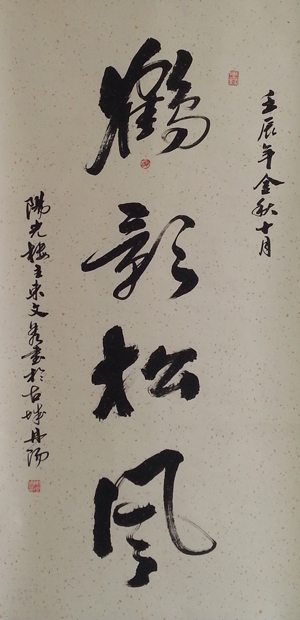 壬辰年金秋十月
鶴影松风
陽光樓主東文秀書於古城丹陽